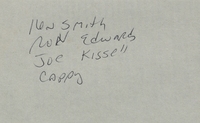 Ken Smith
Ron Edwards
Joe Kissell
Cappy